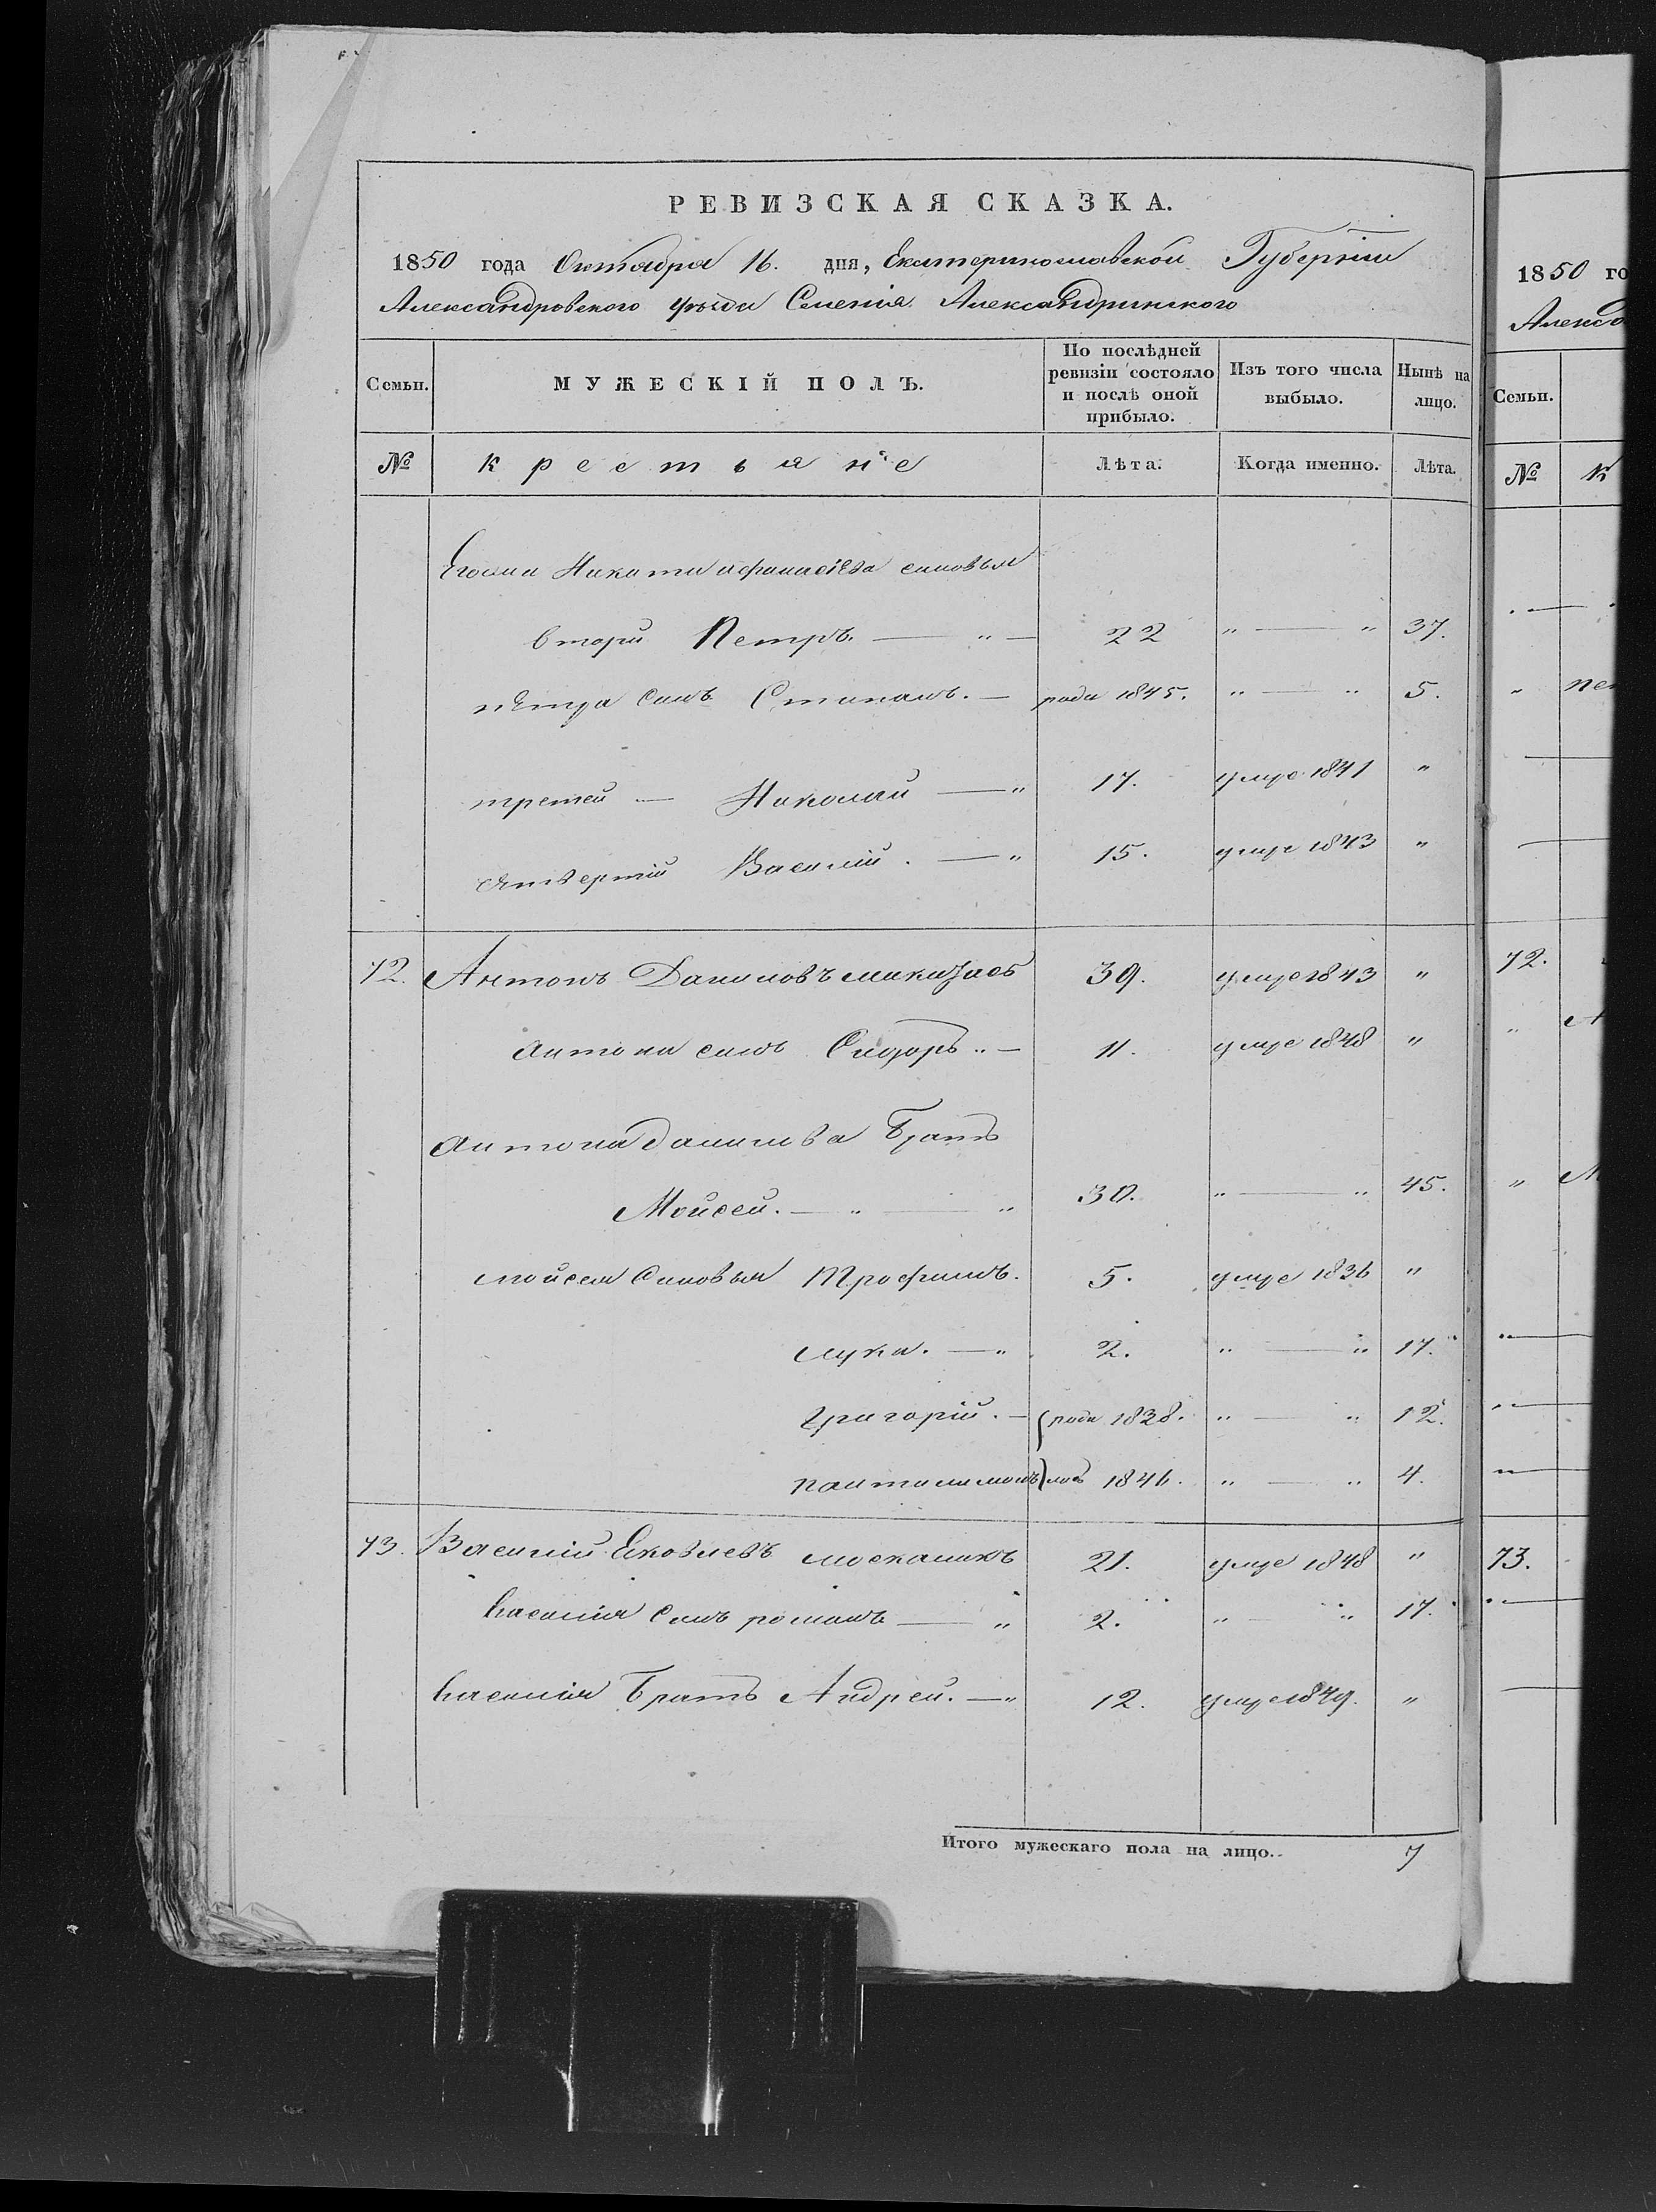 РЕВИЗСКАЯ СКАЗКА.
1850 года Октября 16. дня, Екатеринославской Губерніи
Александровского уезда Селенія Александринского
Семьи. МУЖЕСКІЙ ПОЛЪ. По послѣдней ревизіи состояло и послѣ оной прибыло. Изъ того числа выбыло. Нынѣ на лицо.
№ крестьяне Лѣта. Когда именно. Лѣта.
Никити сыновья
втори Петръ. — " — 22 " — " 37.
петра сынъ Степанъ. — роди 1845. " — " 5.
третей — Николай — " 17. умре 1841 "
Василій. — " 15. умре 1843 "
72. Антонъ Даниловъ 39. умре 1843 "
антона сынъ Сидоръ " — 11. умре 1848 "
антона данилова Братъ
Мойсей. — " — " 30. " — " 45.
мойсея сыновья Трофимъ. 5. умре 1836 "
лука. — " 2. " — " 17.
григорій. — роди 1838. " — " 12.
пантилимонъ 1846. " — " 4.
73. Василій Яковлевъ москаликъ 21. умре 1848 "
василия сынъ романъ — " 2. " — " 17.
василия Братъ Андрей. — " 12. умре 1849. "
Итого мужескаго пола на лицо.. 7
1850 го
Алекса
Семьи.
№ К
" пет
72.
" А
" М
73.